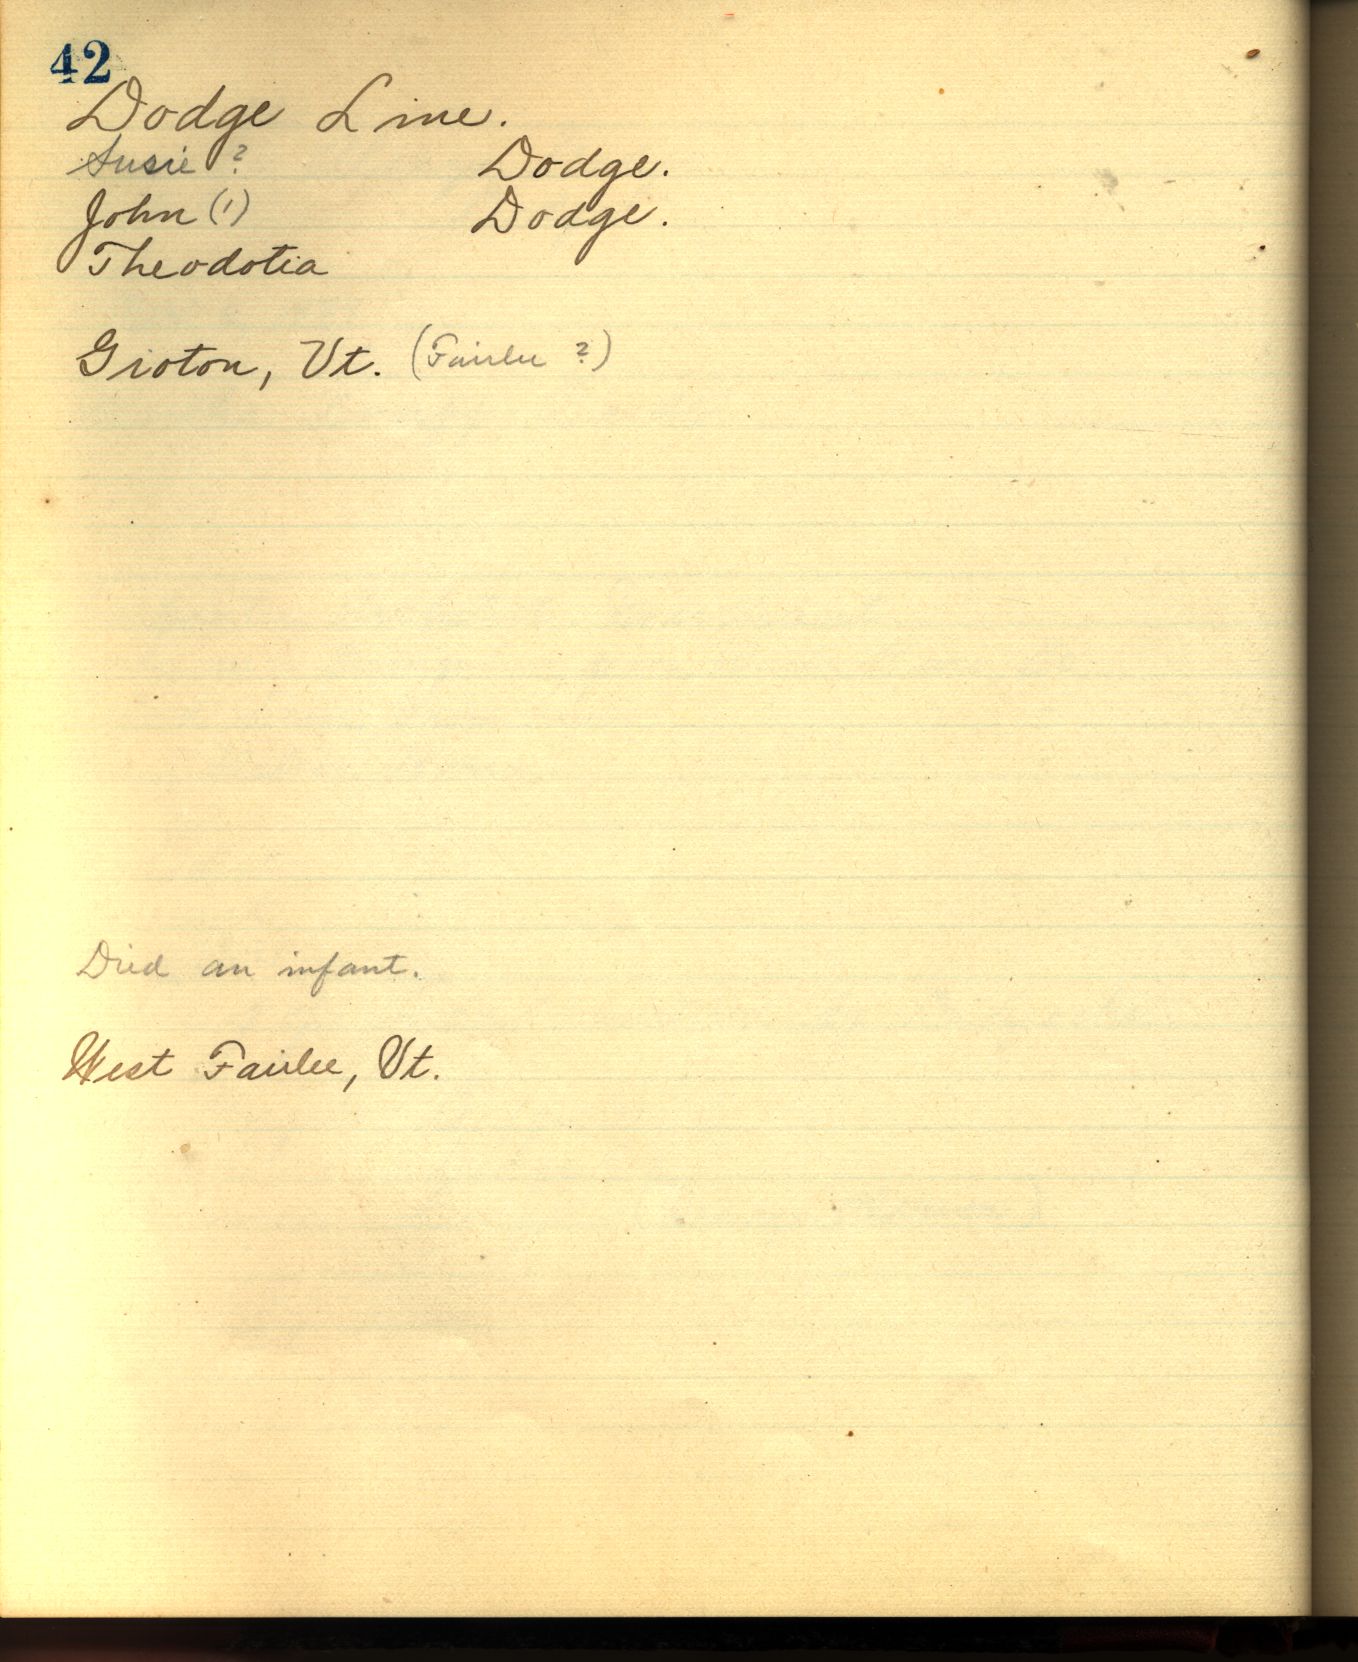 42
Dodge Line.
Susie ? Dodge.
John (1) Dodge.
Theodotia
Groton, Vt. (Fairlee ?)
Died an infant.
West Fairlee, Vt.